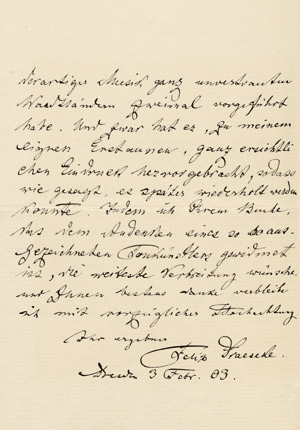 derartiger Musik ganz unvertrauten
Waadtländern zweimal vorgeführt
habe. Und zwar hat es, zu meinem
eignen Erstaunen, ganz ersichtli-
chen Eindruck hervorgebracht, sodass
wie gesagt, es später wiederholt werden
konnte. Indem ich Ihrem Bunde,
das dem Andenken eines so aus-
gezeichneten Tonkünstlers gewidmet
ist, die weiteste Verbreitung wünsche
und Ihnen bestens danke verbleibe
ich mit vorzüglicher Hochachtung
Ihr ergebener
Felix Draeseke.
Dresden 3 Febr. 03.